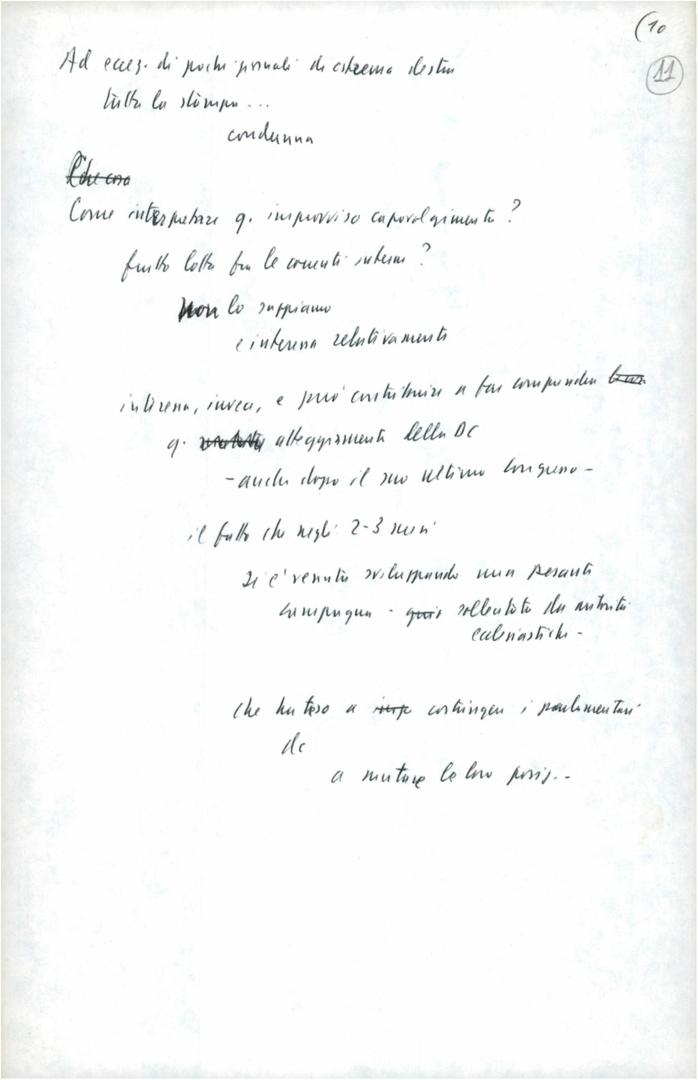 (10
11
Ad ecces. di pochi giornali di estrema destra
tutta la stampa...
condanna
Che cosa
Come interpretare q. improvviso capovolgimento?
frutto lotta fra le correnti interne?
non lo sappiamo
e interessa relativamente
interessa, invece, e può contribuire a far comprendere
q. atteggiamento della DC
- anche dopo il suo ultimo Congresso -
il fatto che negli 2-3 mesi
si è venuta sviluppando una pesante
campagna - sollecitata da autorità
ecclesiastiche -
che ha teso a costringere i parlamentari
dc
a mutare la loro posiz..